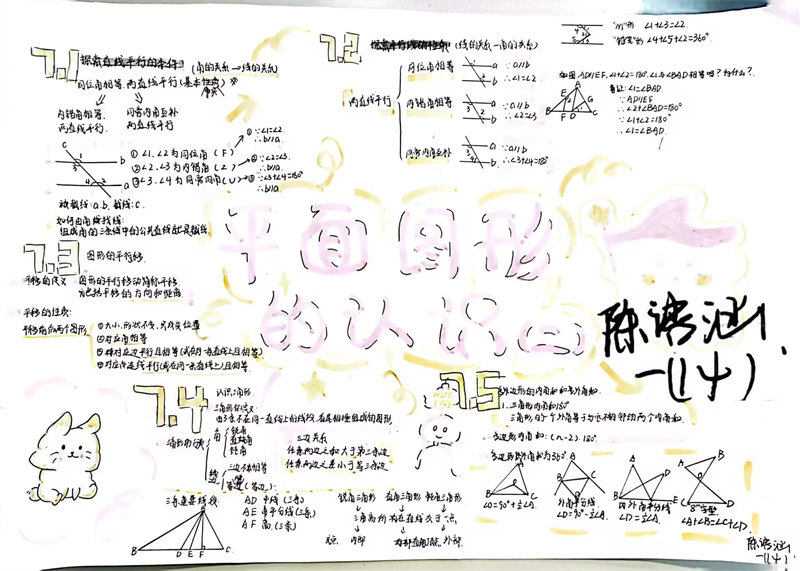 7.1 探索直线平行的条件 (角的关系→线的关系)
同位角相等,两直线平行(基本性质)
内错角相等 同旁内角互补
两直线平行. 两直线平行
①∠1.∠2为同位角(F)
②∠2.∠3为内错角(Z)
③∠3.∠4为同旁内角(U)
①∵∠1=∠2
∴b//a
②∵∠2=∠3.
∴b//a
③∵∠3+∠4=180°
∴b//a
被截线:a.b. 截线:c.
如何由角找线:
组成角的三条线中的公共直线就是截线
7.2 探索平行线的性质 (线的关系→角的关系)
两直线平行
同位角相等
∵a//b
∴∠1=∠2
内错角相等
∵a//b
∴∠2=∠3
同旁内角互补
∵a//b
∴∠3+∠4=180°
"M"的 ∠1+∠3=∠2.
"铅笔"的 ∠4+∠5+∠2=360°
如图AD//EF,∠1+∠2=180°.∠1与∠BAD相等吗?为什么?
∠1=∠BAD
∵AD//EF
∴∠2+∠BAD=180°
∵∠1+∠2=180°
∴∠1=∠BAD
平面图形
的认识(二)
陈语涵
一(14)
7.3 图形的平行移
平移的定义 图形的平行移动简称平移
平移的性质:
平移前后两个图形
①大小、形状不变,只改变位置
②对应角相等
③对应边平行且相等(或在同一条直线上且相等)
④对应点连线平行(或在同一条直线上)且相等
7.4 认识三角形
三角形的定义:
由3条不在同一直线上的线段,首尾相接组成的图形
三角形分类
角
锐角
直角
钝角
边
三边不相等
等腰(等边)
三边关系
任意两边之和大于第三边
任意两边之差小于第三边
三条重要线段
AD 中线(三条)
AE 角平分线(三条)
AF 高.(三条)
锐角三角形 直角三角形 钝角三角形
三高所在直线交于一点
交点: 内部 直角顶点. 外部.
7.5 多边形的内角和与外角和
1.三角形内角和180°
三角形的一个外角等于与它不相邻的两个内角和
多边形内角和:(n-2)·180°
多边形外角和为360°
∠D=90°+½∠A
外角平分线
∠D=90°-½∠A.
内外角平分线
∠D=½∠A.
"8"字型
∠A+∠B=∠C+∠D.
陈语涵
一(14)